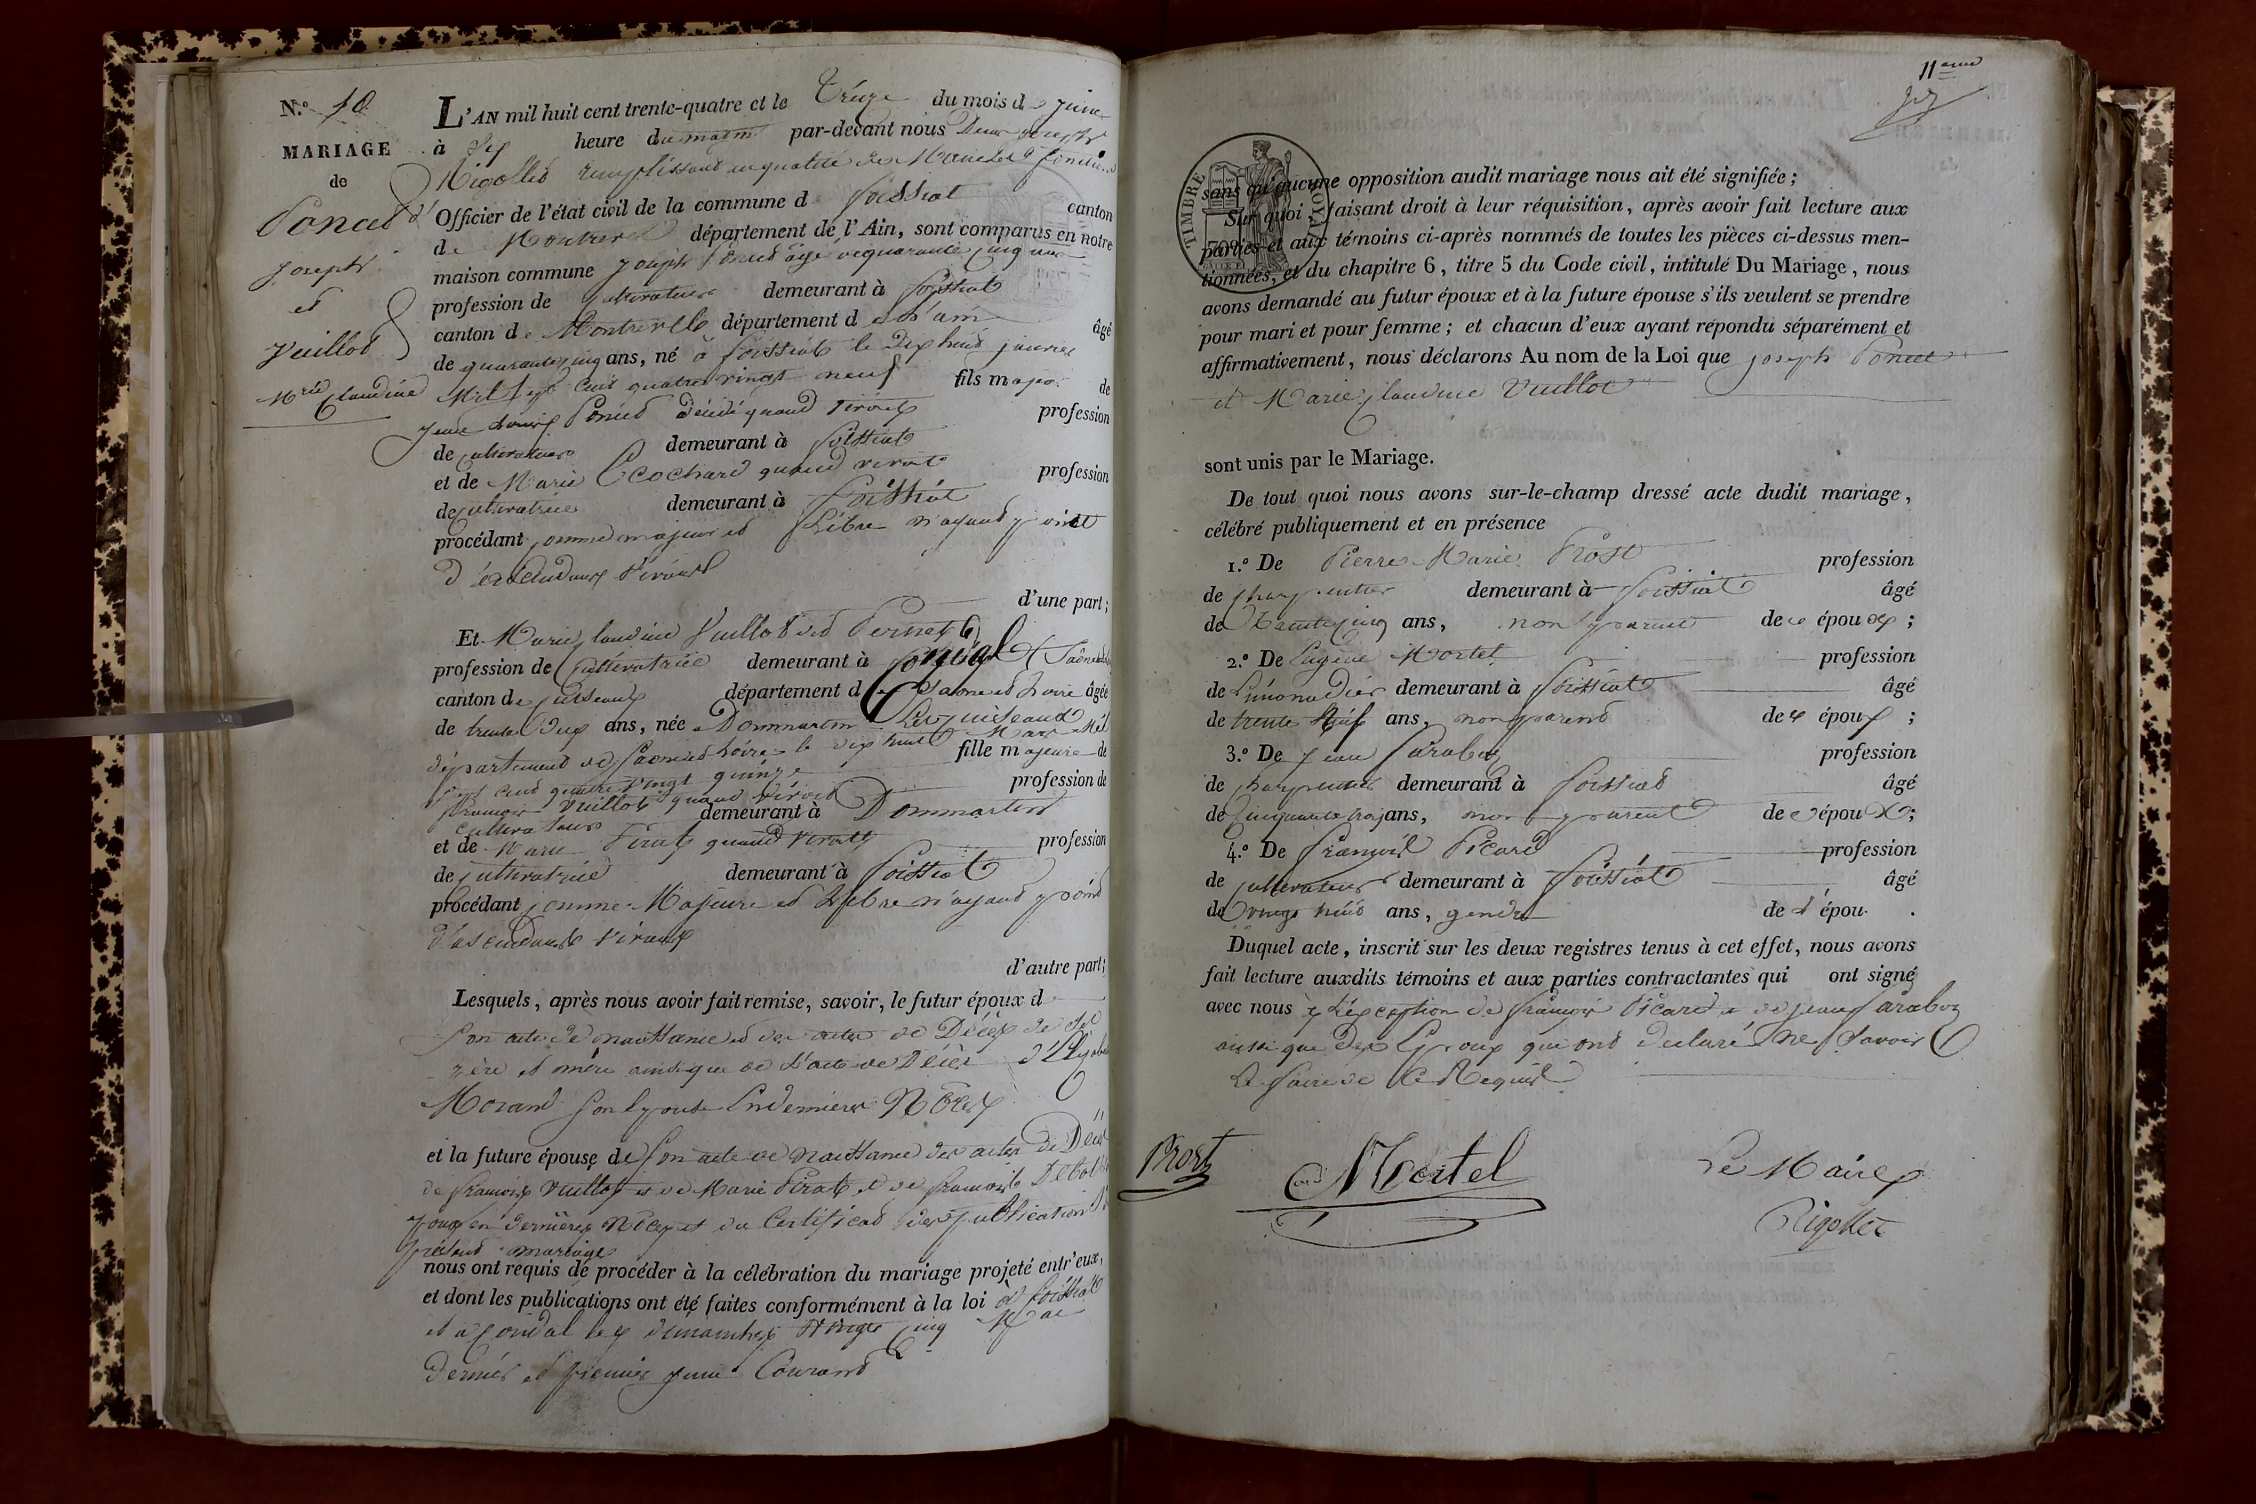 N.o 10
MARIAGE
de
Poncet
Joseph
et
Vuillot
Mrie Claudine
L'AN mil huit cent trente-quatre et le Treize du mois de Juin
à Six heure du matin par-devant nous Joseph
Rigollet remplissant en qualité de Maire les fonctions
Officier de l'état civil de la commune d Foissiat canton
de Montrevel département de l'Ain, sont comparus en notre
maison commune Joseph Poncet âgé de quarante cinq ans
profession de cultivateur demeurant à Foissiat
canton de Montrevel département d e l'ain âgé
de quarante cinq ans, né à Foissiat le Dix huit janvier
Mil Sept Cent quatre vingt neuf fils majeur de
Jean Louis Poncet décédé quand vivait profession
de cultivateur demeurant à Foissiat
et de Marie Ecochard quand vivait profession
de cultivatrice demeurant à Foissiat
procédant comme majeur et Libre n'ayant point
d'ascendans vivans
d'une part;
Et Marie Claudine Vuillot
profession de Cultivatrice demeurant à Condal (Saône
canton de Cuiseaux département de Saone et Loire âgée
de trente Dix ans, née a Dommartin Les Cuiseaux
département de Saone et Loire le dix huit Mars Mil
fille majeure de
Sept cent quatre vingt quinze
profession de
François Vuillot quand vivait
cultivateur demeurant à Dommartin
et de Marie Pirat quand vivait profession
de cultivatrice demeurant à Foissiat
procédant comme Majeure et Libre n'ayant point
d'ascendants vivans
d'autre part;
Lesquels, après nous avoir fait remise, savoir, le futur époux d
Son acte de naissance et des actes de Décès de ses
père et mère ainsi que de l'acte de Décès
Morand Son Epouse En dernieres Nôces
et la future épouse de Son acte de naissance des actes de Décès
de François Vuillot et de Marie Pirat et de François
Epoux en dernières Nôces et du Certificat des publications
présent mariage
nous ont requis de procéder à la célébration du mariage projeté entr'eux,
et dont les publications ont été faites conformément à la loi à Foissiat
et à Condal les dimanches Vingt Cinq Mai
Dernier et premier Juin Courant
11eme
TIMBRE ROYAL
sans qu'aucune opposition audit mariage nous ait été signifiée;
Sur quoi faisant droit à leur réquisition, après avoir fait lecture aux
parties et aux témoins ci-après nommés de toutes les pièces ci-dessus men-
tionnées, et du chapitre 6, titre 5 du Code civil, intitulé Du Mariage, nous
avons demandé au futur époux et à la future épouse s'ils veulent se prendre
pour mari et pour femme; et chacun d'eux ayant répondu séparément et
affirmativement, nous déclarons Au nom de la Loi que Joseph Poncet
et Marie Claudine Vuillot
sont unis par le Mariage.
De tout quoi nous avons sur-le-champ dressé acte dudit mariage,
célébré publiquement et en présence
1.o De Pierre Marie Prost profession
de charpentier demeurant à Foissiat âgé
de trente cinq ans, non parent des époux;
2.o De Eugène Mortel profession
de Limonadier demeurant à Foissiat âgé
de trente Neuf ans, non parent des époux;
3.o De Jean Saraboz profession
de charpentier demeurant à Foissiat âgé
de Cinquante trois ans, non parent des époux;
4.o De François Picard profession
de cultivateur demeurant à Foissiat âgé
de vingt huit ans, gendre de l'épou .
Duquel acte, inscrit sur les deux registres tenus à cet effet, nous avons
fait lecture auxdits témoins et aux parties contractantes qui ont signé
avec nous à l'exception de François Picard et de jean Saraboz
ainsi que des Epoux qui ont déclaré ne Savoir
Le faire de Ce Requis
Prost
Mortel
Le Maire
Rigollet